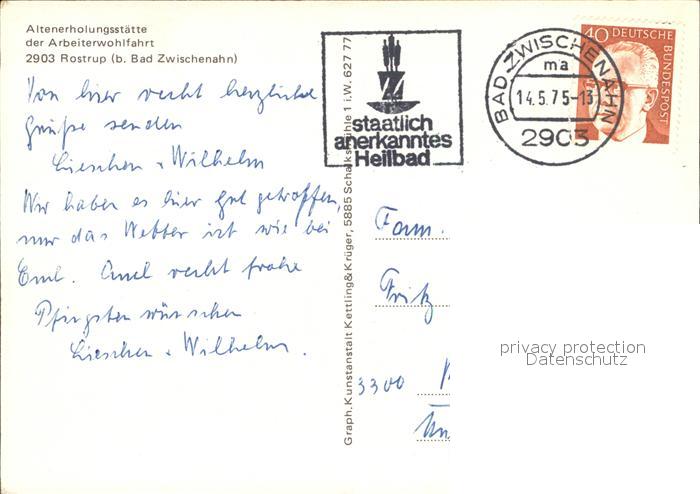 Altenerholungsstätte
der Arbeiterwohlfahrt
2903 Rostrup (b. Bad Zwischenahn)
Von hier recht herzliche
Grüße senden
Lieschen + Wilhelm
Wir haben es hier gut getroffen,
nur das Wetter ist wie bei
Euch. Auch recht frohe
Pfingsten wünschen
Lieschen + Wilhelm.
Graph. Kunstanstalt Kettling & Krüger, 5885 Schalksmühle 1 i.W. 627 77
staatlich
anerkanntes
Heilbad
BAD ZWISCHENAHN
ma
14.5.75-13
2903
40 DEUTSCHE
BUNDESPOST
Fam.
Fritz
3300
privacy protection
Datenschutz